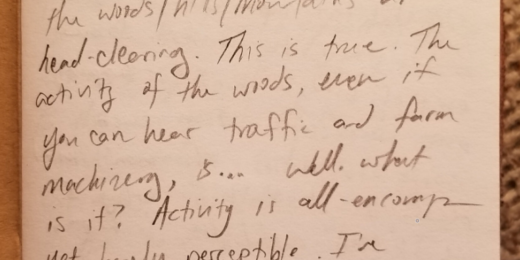 the woods/hills/mountains
head-clearing. This is true. The
activity of the woods, even if
you can hear traffic and farm
machinery, is... well. what
is it? Activity is all-encomp
yet barely perceptible. I'm